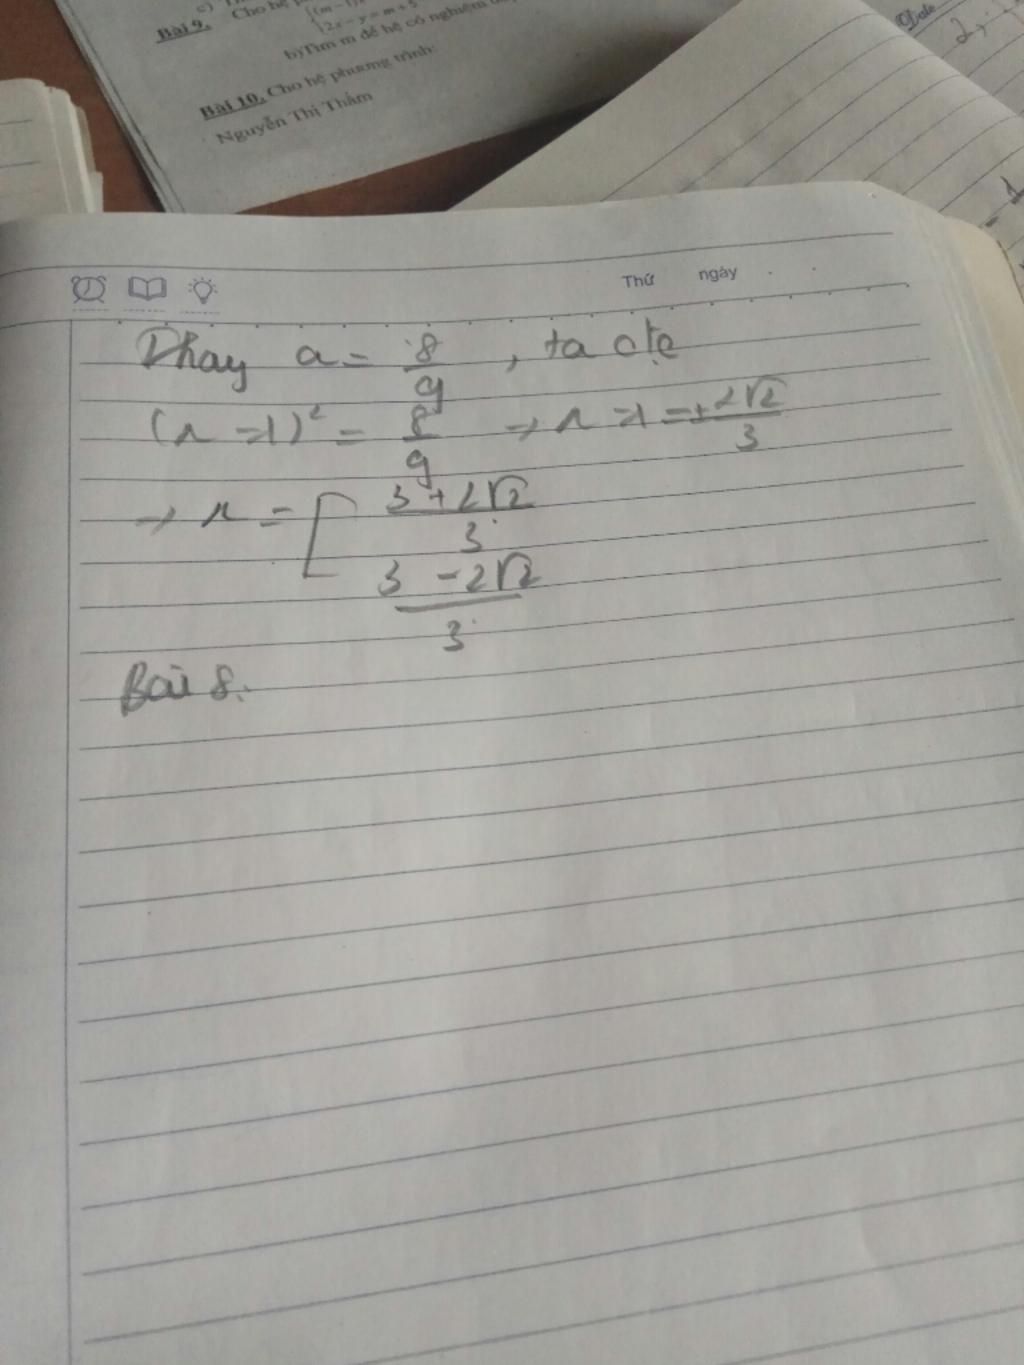 Bài 9. Cho hệ
2x - y = m + 5
b) Tìm m để hệ có nghiệm
Bài 10. Cho hệ phương trình:
Nguyễn Thị Thắm
Date
Thứ ngày
Thay a = 8/9, ta đc
(x - 1)² = 8/9 → x - 1 = ± 2√2/3
→ x = [ 3 + 2√2 / 3
3 - 2√2 / 3
Bài 8: